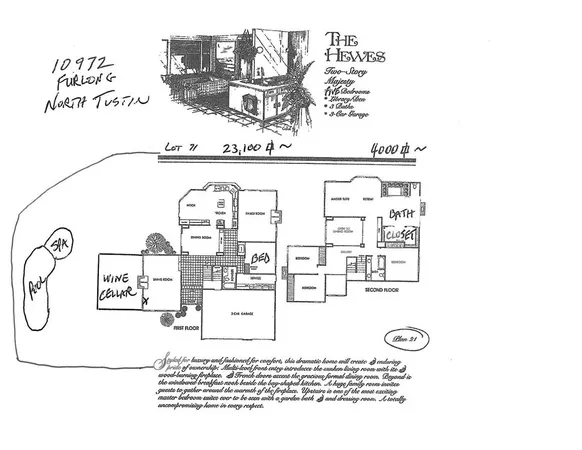 10972
FURLONG
NORTH TUSTIN
THE
HEWES
Two-Story
Majesty
FIVE Bedrooms
* Library/Den
* 3 Baths
* 3-Car Garage
LOT 71 23,100 ~ 4000 ~
NOOK
KITCHEN
FAMILY ROOM
DINING ROOM
BED
SERVICE
WINE
CELLAR
LIVING ROOM
3-CAR GARAGE
FIRST FLOOR
SPA
POOL
MASTER SUITE RETREAT
BATH
CLOSET
OPEN TO
DINING ROOM
BEDROOM
BEDROOM
BEDROOM
SECOND FLOOR
Plan 31
Styled for luxury and fashioned for comfort, this dramatic home will create enduring
pride of ownership. Multi-level front entry introduces the sunken living room with its
wood-burning fireplace. French doors accent the gracious formal dining room. Beyond is
the windowed breakfast nook beside the bay-shaped kitchen. A huge family room invites
guests to gather around the warmth of the fireplace. Upstairs is one of the most exciting
master bedroom suites ever to be seen with a garden bath and dressing room. A totally
uncompromising home in every respect.